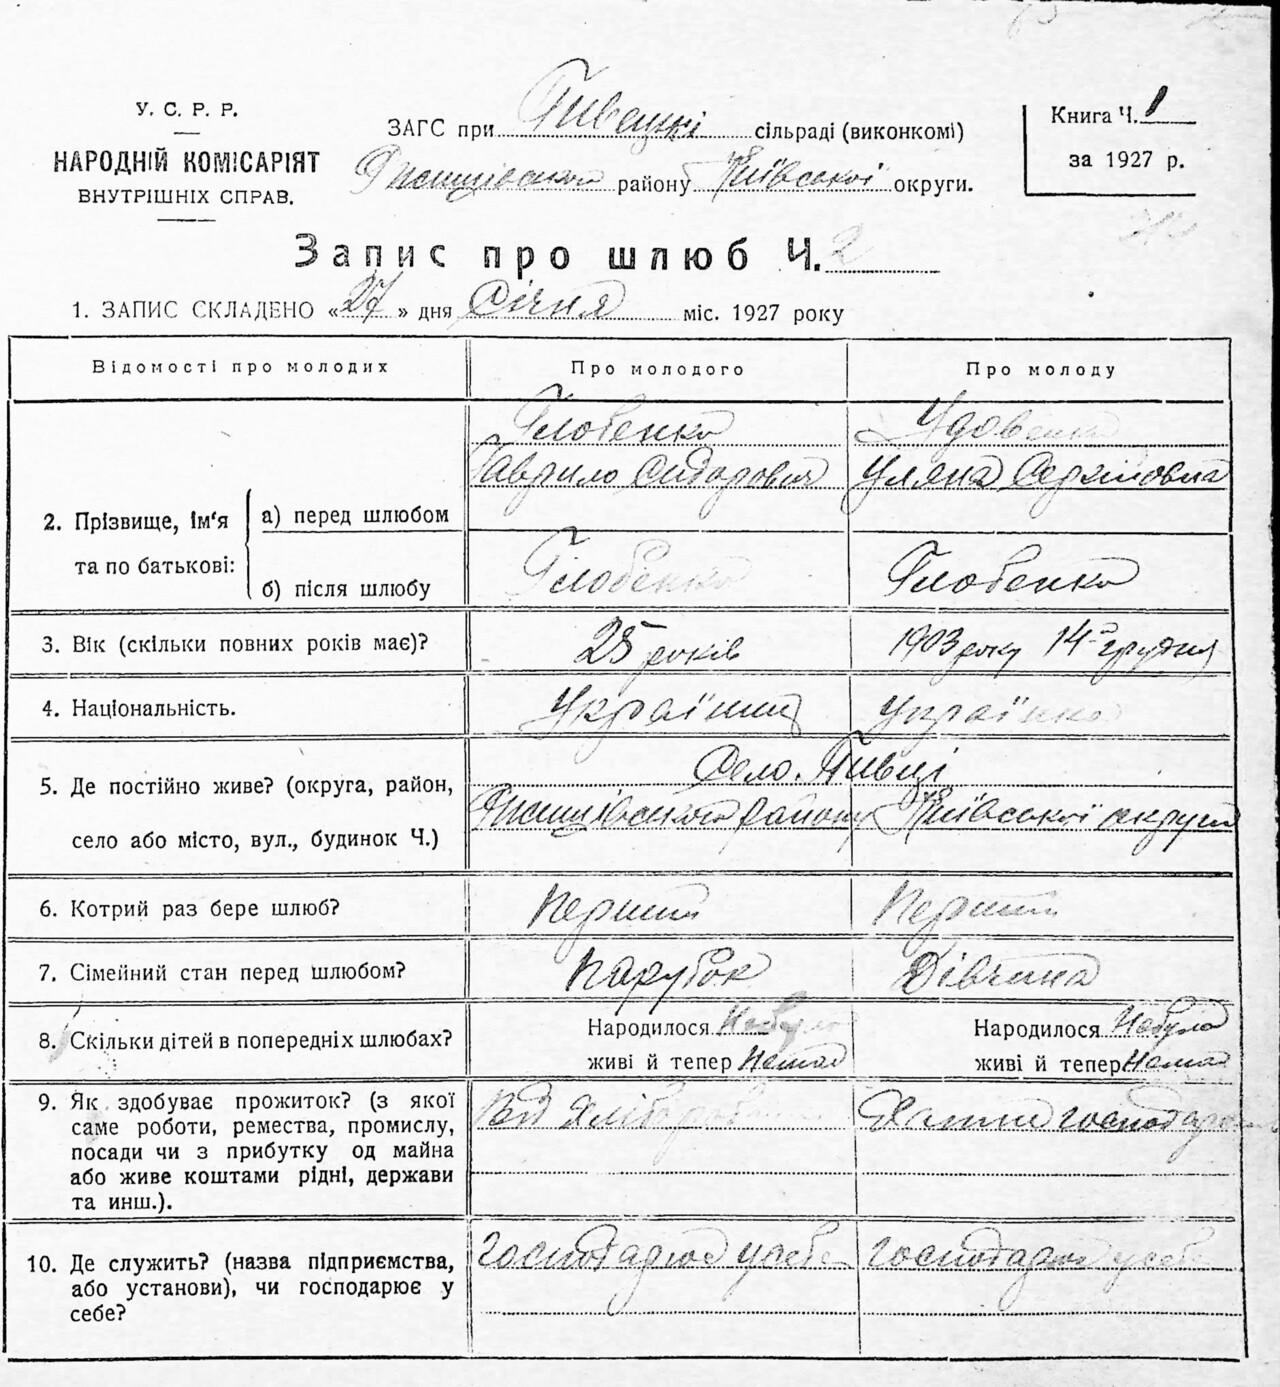 У. С. Р. Р.
НАРОДНІЙ КОМІСАРІЯТ
ВНУТРІШНІХ СПРАВ.
ЗАГС при Пивецкі сільраді (виконкомі)
Ржищівського району Київської округи.
Книга Ч. 1
за 1927 р.
Запис про шлюб Ч. 2
1. ЗАПИС СКЛАДЕНО «27» дня Січня міс. 1927 року
Відомості про молодих Про молодого Про молоду
Глобенко Удовенко
Гаврило Сидорович Уляна Сергіювна
2. Прізвище, ім'я та по батькові:
а) перед шлюбом
б) після шлюбу Глобенко Глобенко
3. Вік (скільки повних років має)? 25 років 1903 року 14го грудня
4. Національність. Українец Українка
5. Де постійно живе? (округа, район, село або місто, вул., будинок Ч.)
Село. Пивці
Ржищівського району Київської округи
6. Котрий раз бере шлюб? Перший Перший
7. Сімейний стан перед шлюбом? Парубок Дівчина
8. Скільки дітей в попередніх шлюбах?
Народилося Небуло Народилося Небуло
живі й тепер Немає живі й тепер Немає
9. Як здобуває прожиток? (з якої
саме роботи, ремества, промислу,
посади чи з прибутку од майна
або живе коштами рідні, держави
та инш.).
Від Хлібороб господар
10. Де служить? (назва підприємства,
або установи), чи господарює у
себе?
господарює усебе господарює усебе